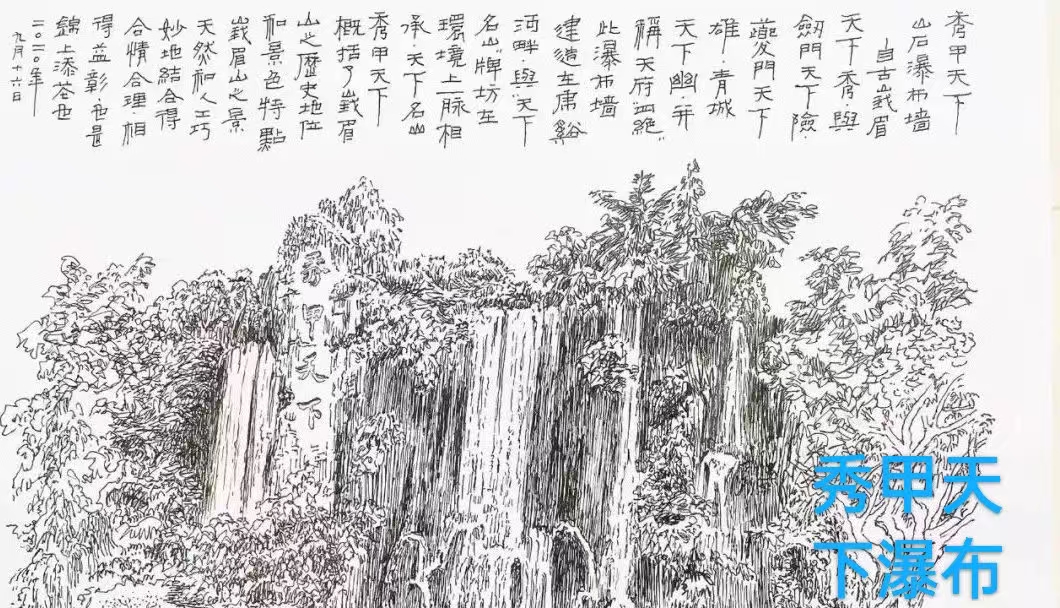 秀甲天下
山石瀑布墙
自古峩眉
天下秀·與
劒門天下險·
夔門天下
雄·青城
天下幽·并
稱"天府四絕"
此瀑布墙
建造在虎谿
河畔·與·天下
名山"牌坊在
環境上一脉相
承·天下名山
秀甲天下
概括了峩眉
山之歷史地位
和景色特點
峩眉山之景
天然和人工巧
妙地结合得
合情合理·相
得益彰·也是
錦上添花也
二〇二〇年
九月十六日
秀甲天下
秀甲天
下瀑布